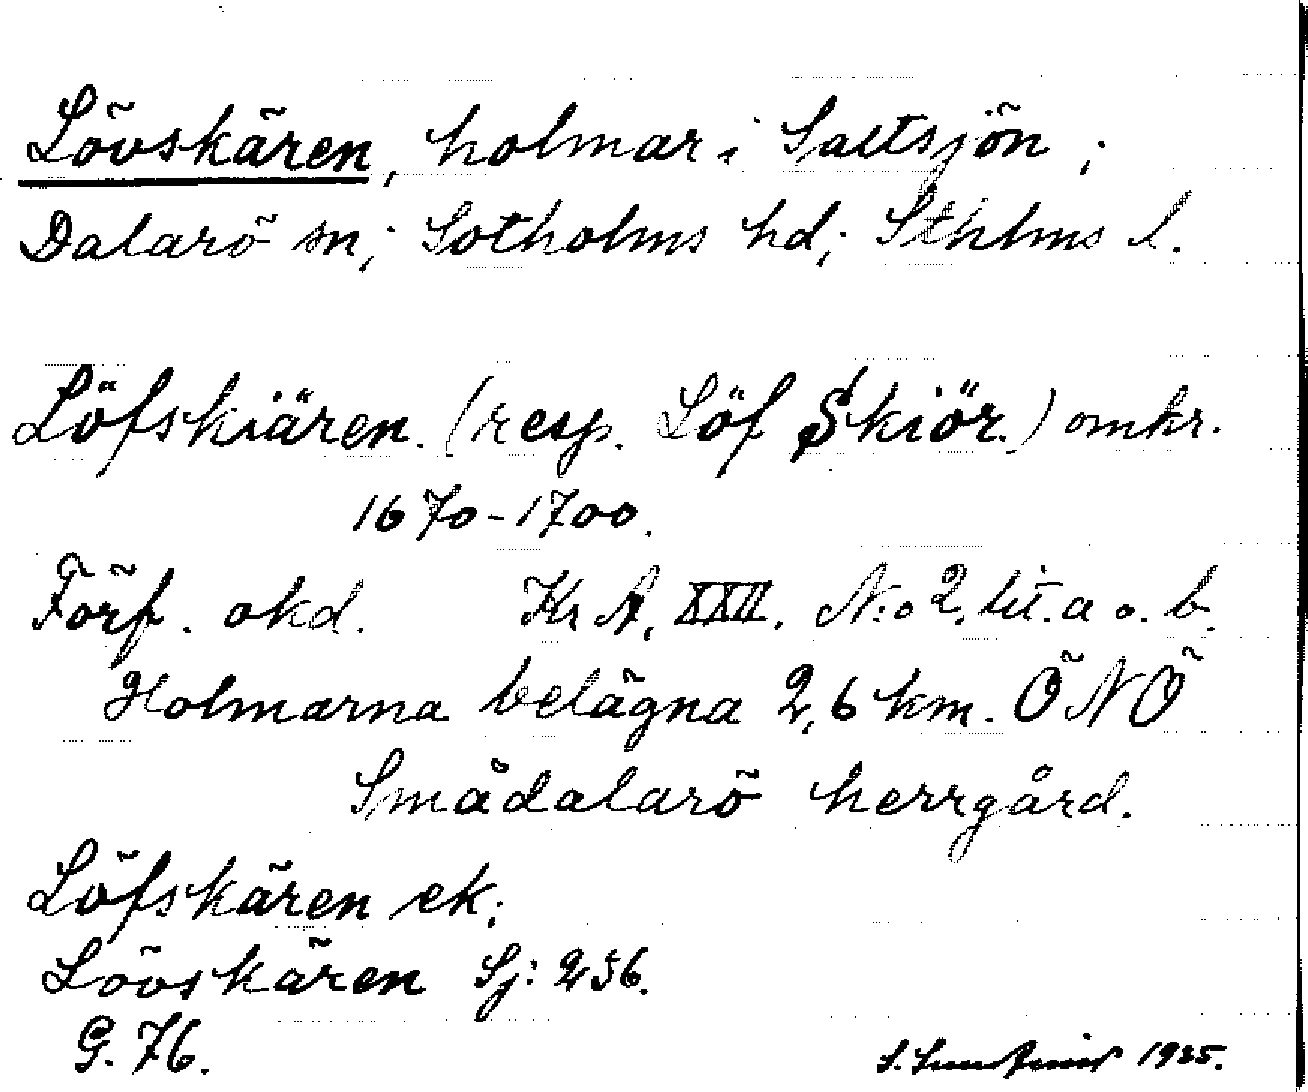 Lövskären, holmar i Saltsjön ;
Dalarö sn; Sotholms hd; Sthlms l.
Löfskiären. (resp. Löf Skiör.) omkr.
1670-1700.
Förf. okd. Kr A, XXII. N:o 2, lit. a o. b.
Holmarna belägna 2,6 km. ÖNÖ
Smådalarö herrgård.
Löfskären ek;
Lövskären Sj: 236.
G. 76.
S. 1935.